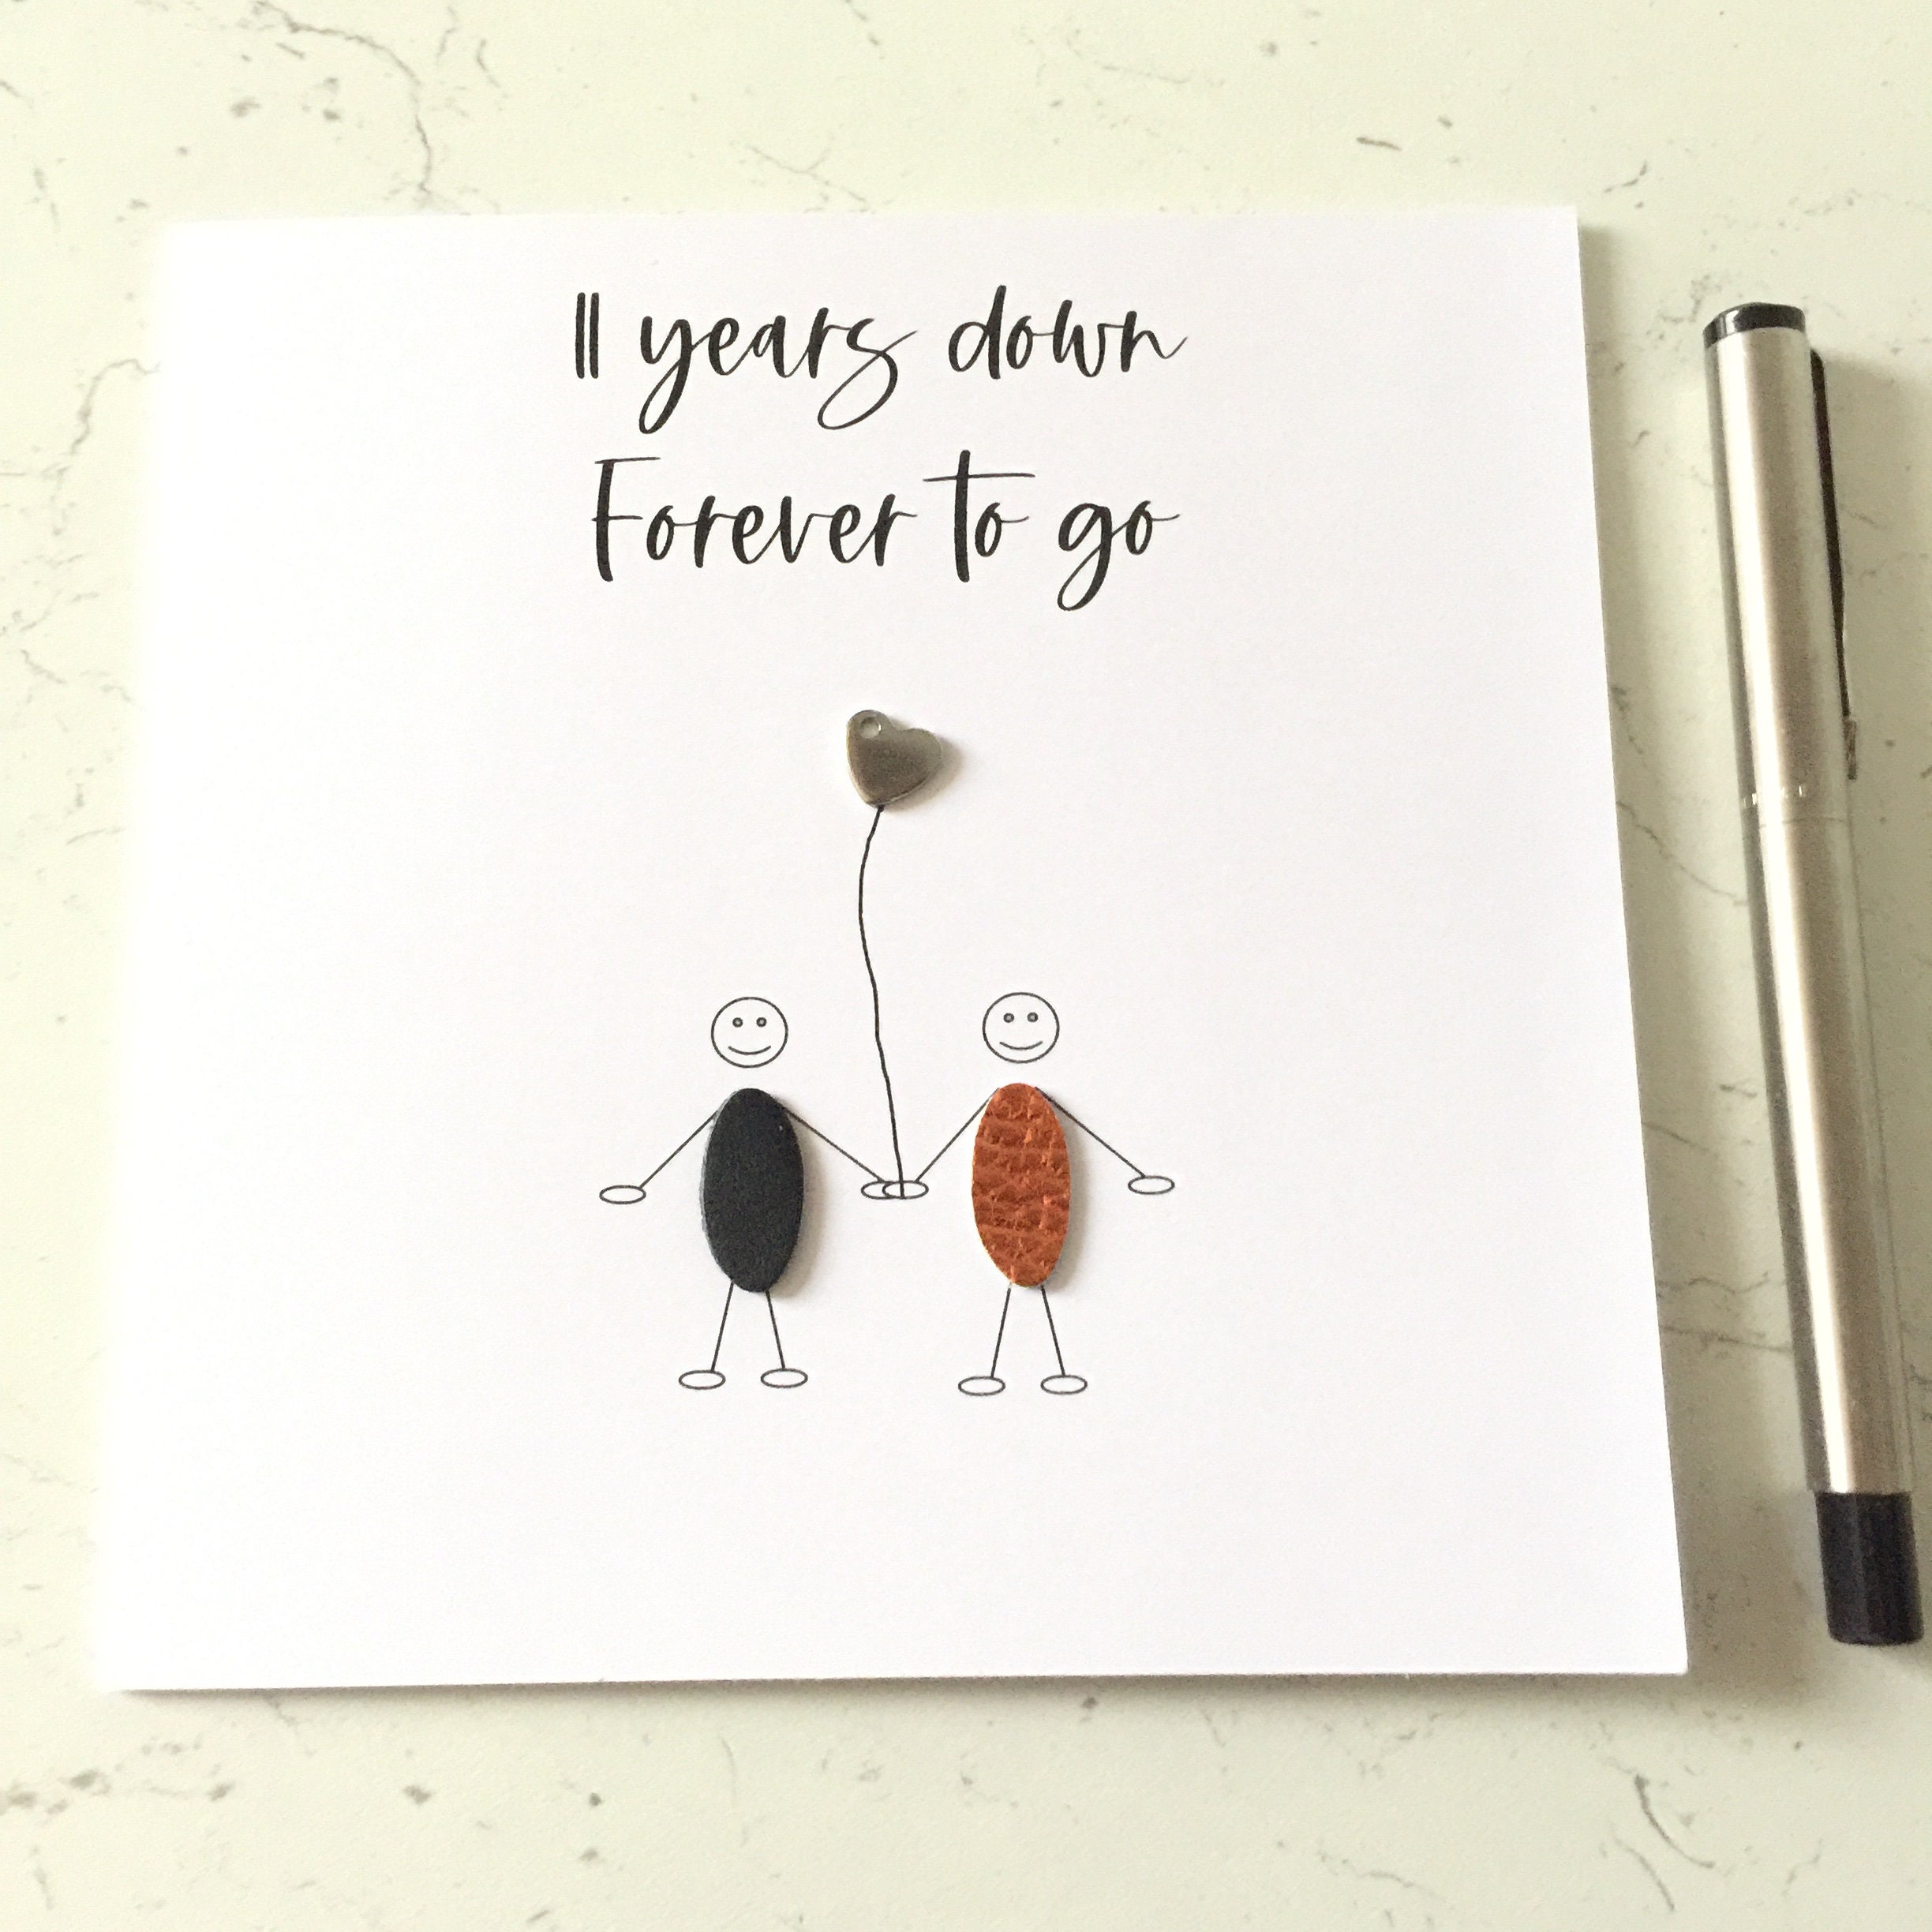 11 years down
Forever to go